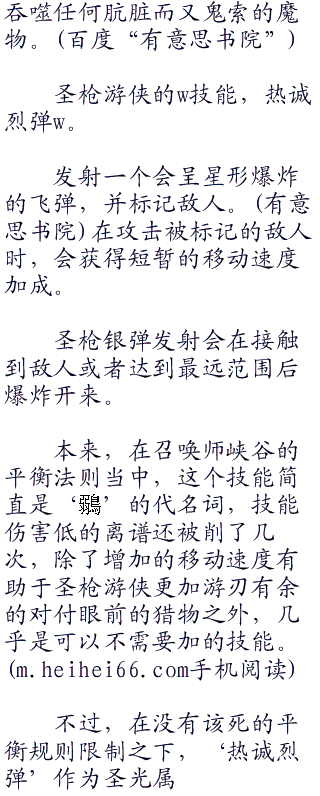 吞噬任何肮脏而又鬼索的魔
物。(百度“有意思书院”)
圣枪游侠的w技能，热诚
烈弹w。
发射一个会呈星形爆炸
的飞弹，并标记敌人。(有意
思书院)在攻击被标记的敌人
时，会获得短暂的移动速度
加成。
圣枪银弹发射会在接触
到敌人或者达到最远范围后
爆炸开来。
本来，在召唤师峡谷的
平衡法则当中，这个技能简
直是‘鶸’的代名词，技能
伤害低的离谱还被削了几
次，除了增加的移动速度有
助于圣枪游侠更加游刃有余
的对付眼前的猎物之外，几
乎是可以不需要加的技能。
(m.heihei66.com手机阅读)
不过，在没有该死的平
衡规则限制之下，‘热诚烈
弹’作为圣光属